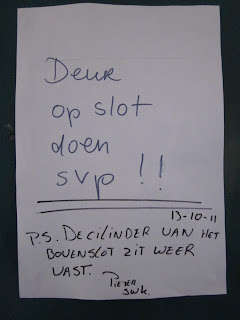 Deur
op slot
doen
svp !!
13-10-11
P.S. DE CILINDER VAN HET
BOVENSLOT ZIT WEER
VAST.
PIETER
SWK.